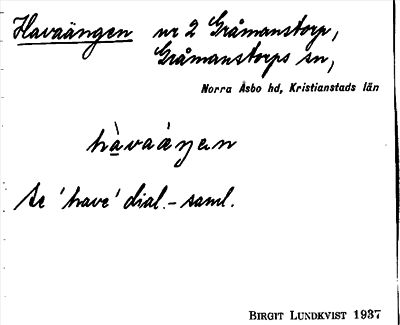 Havaängen nr 2 Gråmanstorp,
Gråmanstorps sn,
Norra Åsbo hd, Kristianstads län
hàvaáŋən
Se 'have' dial.-saml.
BIRGIT LUNDKVIST 1937